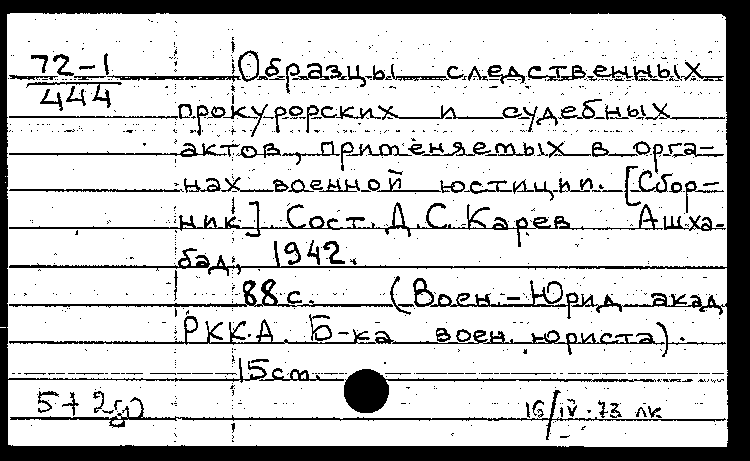 72-1
444
Образцы следственных
прокурорских и судебных
актов, применяемых в орга-
нах военной юстиции. [Сбор-
ник]. Сост. Д.С. Карев. Ашха-
бад, 1942.
88 с. (Воен.-Юрид. акад.
РККА. Б-ка воен. юриста).
15 см.
16/IV-73 лк